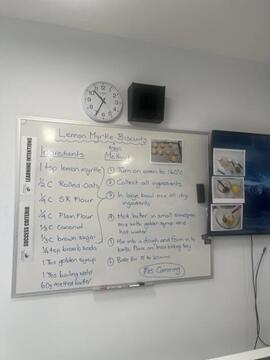 Lemon Myrtle Biscuits
Ingredients
1 tsp lemon myrtle
½ C Rolled Oats
¼ C S.R Flour
¼ C Plain Flour
⅓ C Coconut
⅓ C brown sugar
¼ tsp bicarb soda
1 Tbs golden syrup
1 Tbs boiling water
60g melted butter
Method
① Turn on oven to 160°C
② Collect all ingredients
③ In large bowl mix all dry
ingredients
④ Melt butter in small saucepan
mix with golden syrup and
hot water
⑤ Mix into a dough and form in to
balls. Place on lined baking tray
⑥ Bake for
minutes
LEARNING INTENTIONS
SUCCESS CRITERIA